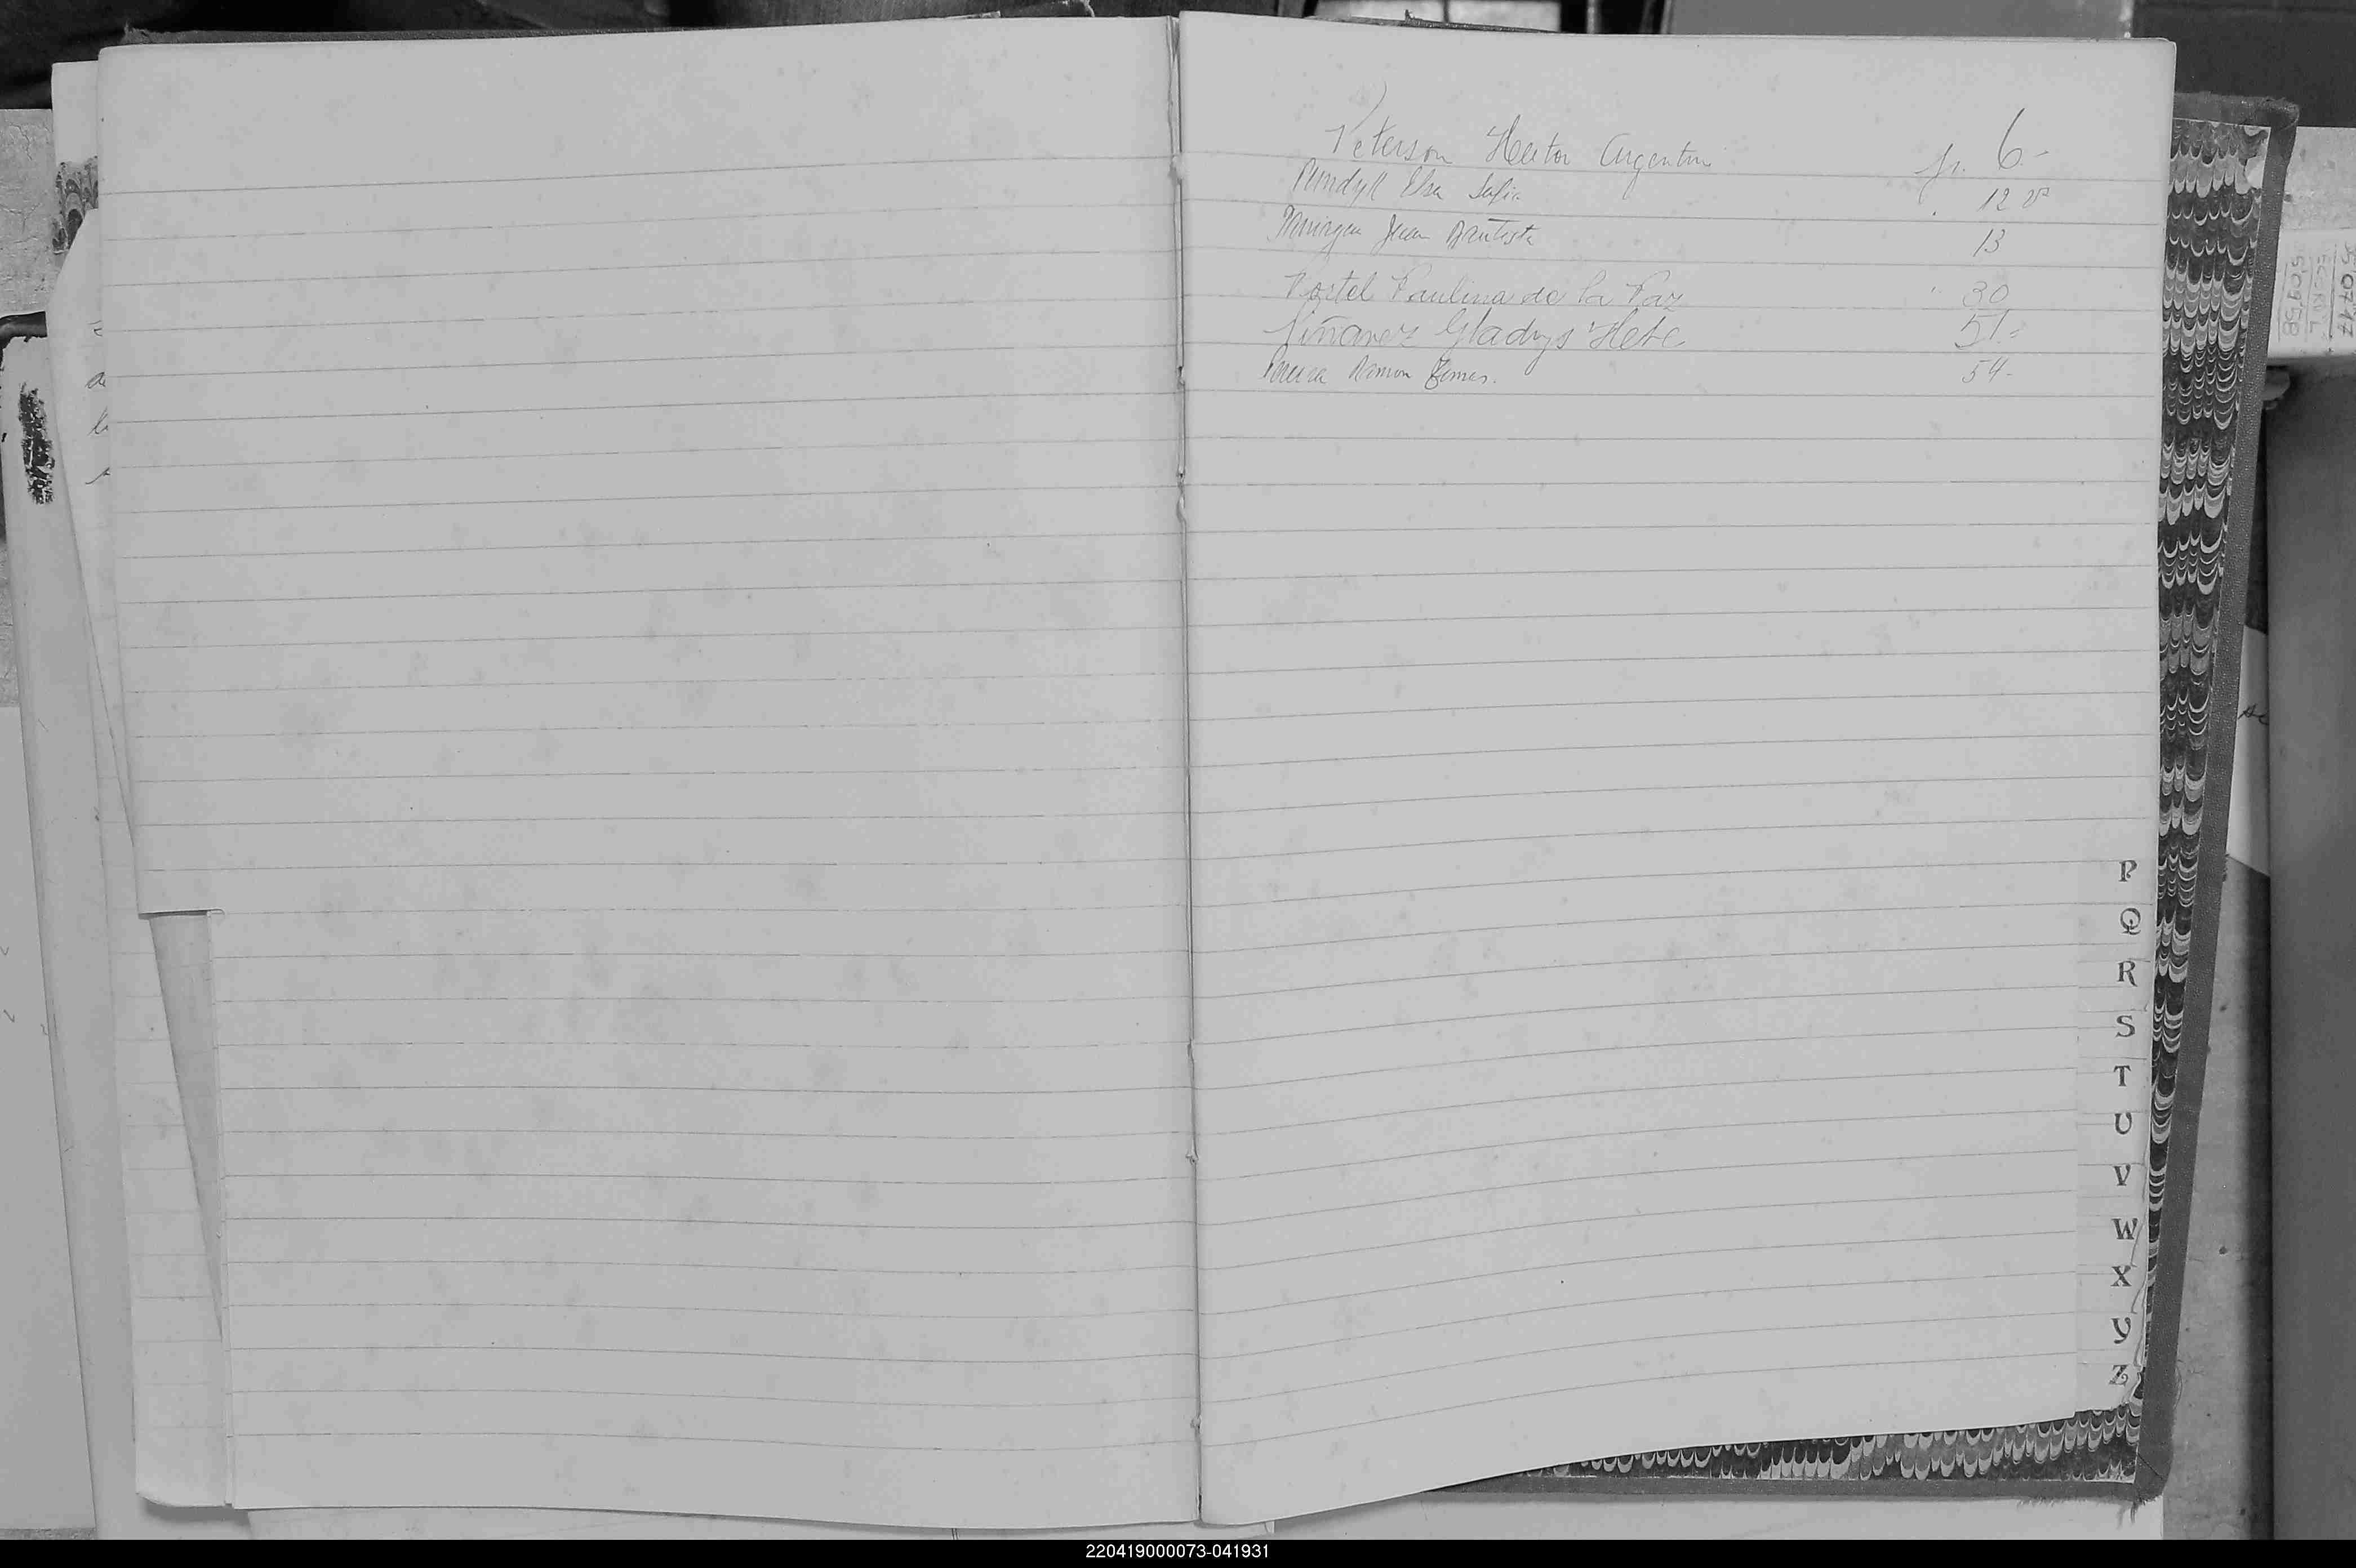 Peterson Hector Argentin fs. 6.-
Elsa Sofia 12 vº
Juan Bautista 13
Postel Paulina de la Paz " 30
Piñanez Gladys Hebe 51.-
Pereira Ramon 54-
P
Q
R
S
T
U
V
W
X
Y
Z
220419000073-041931